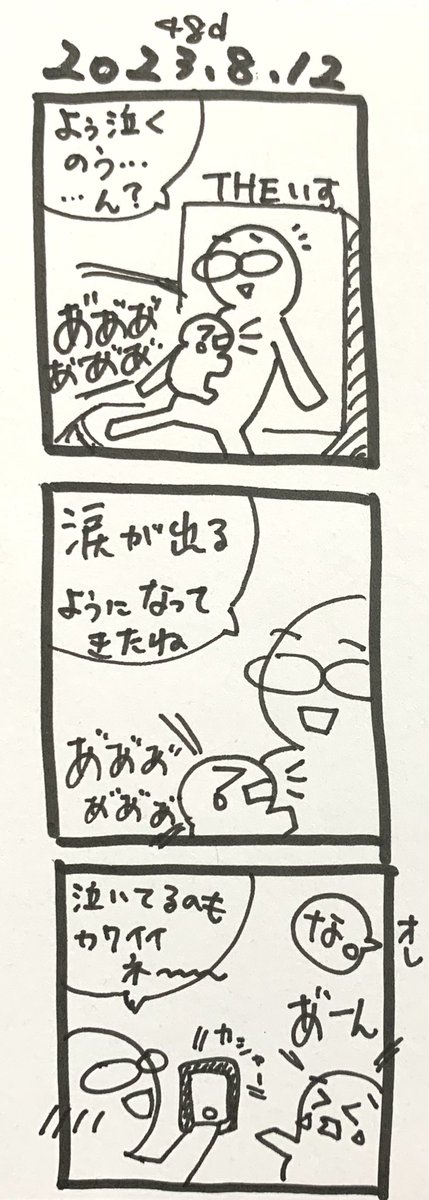 48d
2023.8.12
よぅ泣く
のう…
…ん?
THEいす
あ゛あ゛あ゛
あ゛あ゛あ゛
涙が出る
ようになって
きたね
あ゛あ゛あ゛
あ゛あ゛あ゛
泣いてるのも
カワイイ
ネ〜〜
な。
オレ
あ゛ーん
カシャー